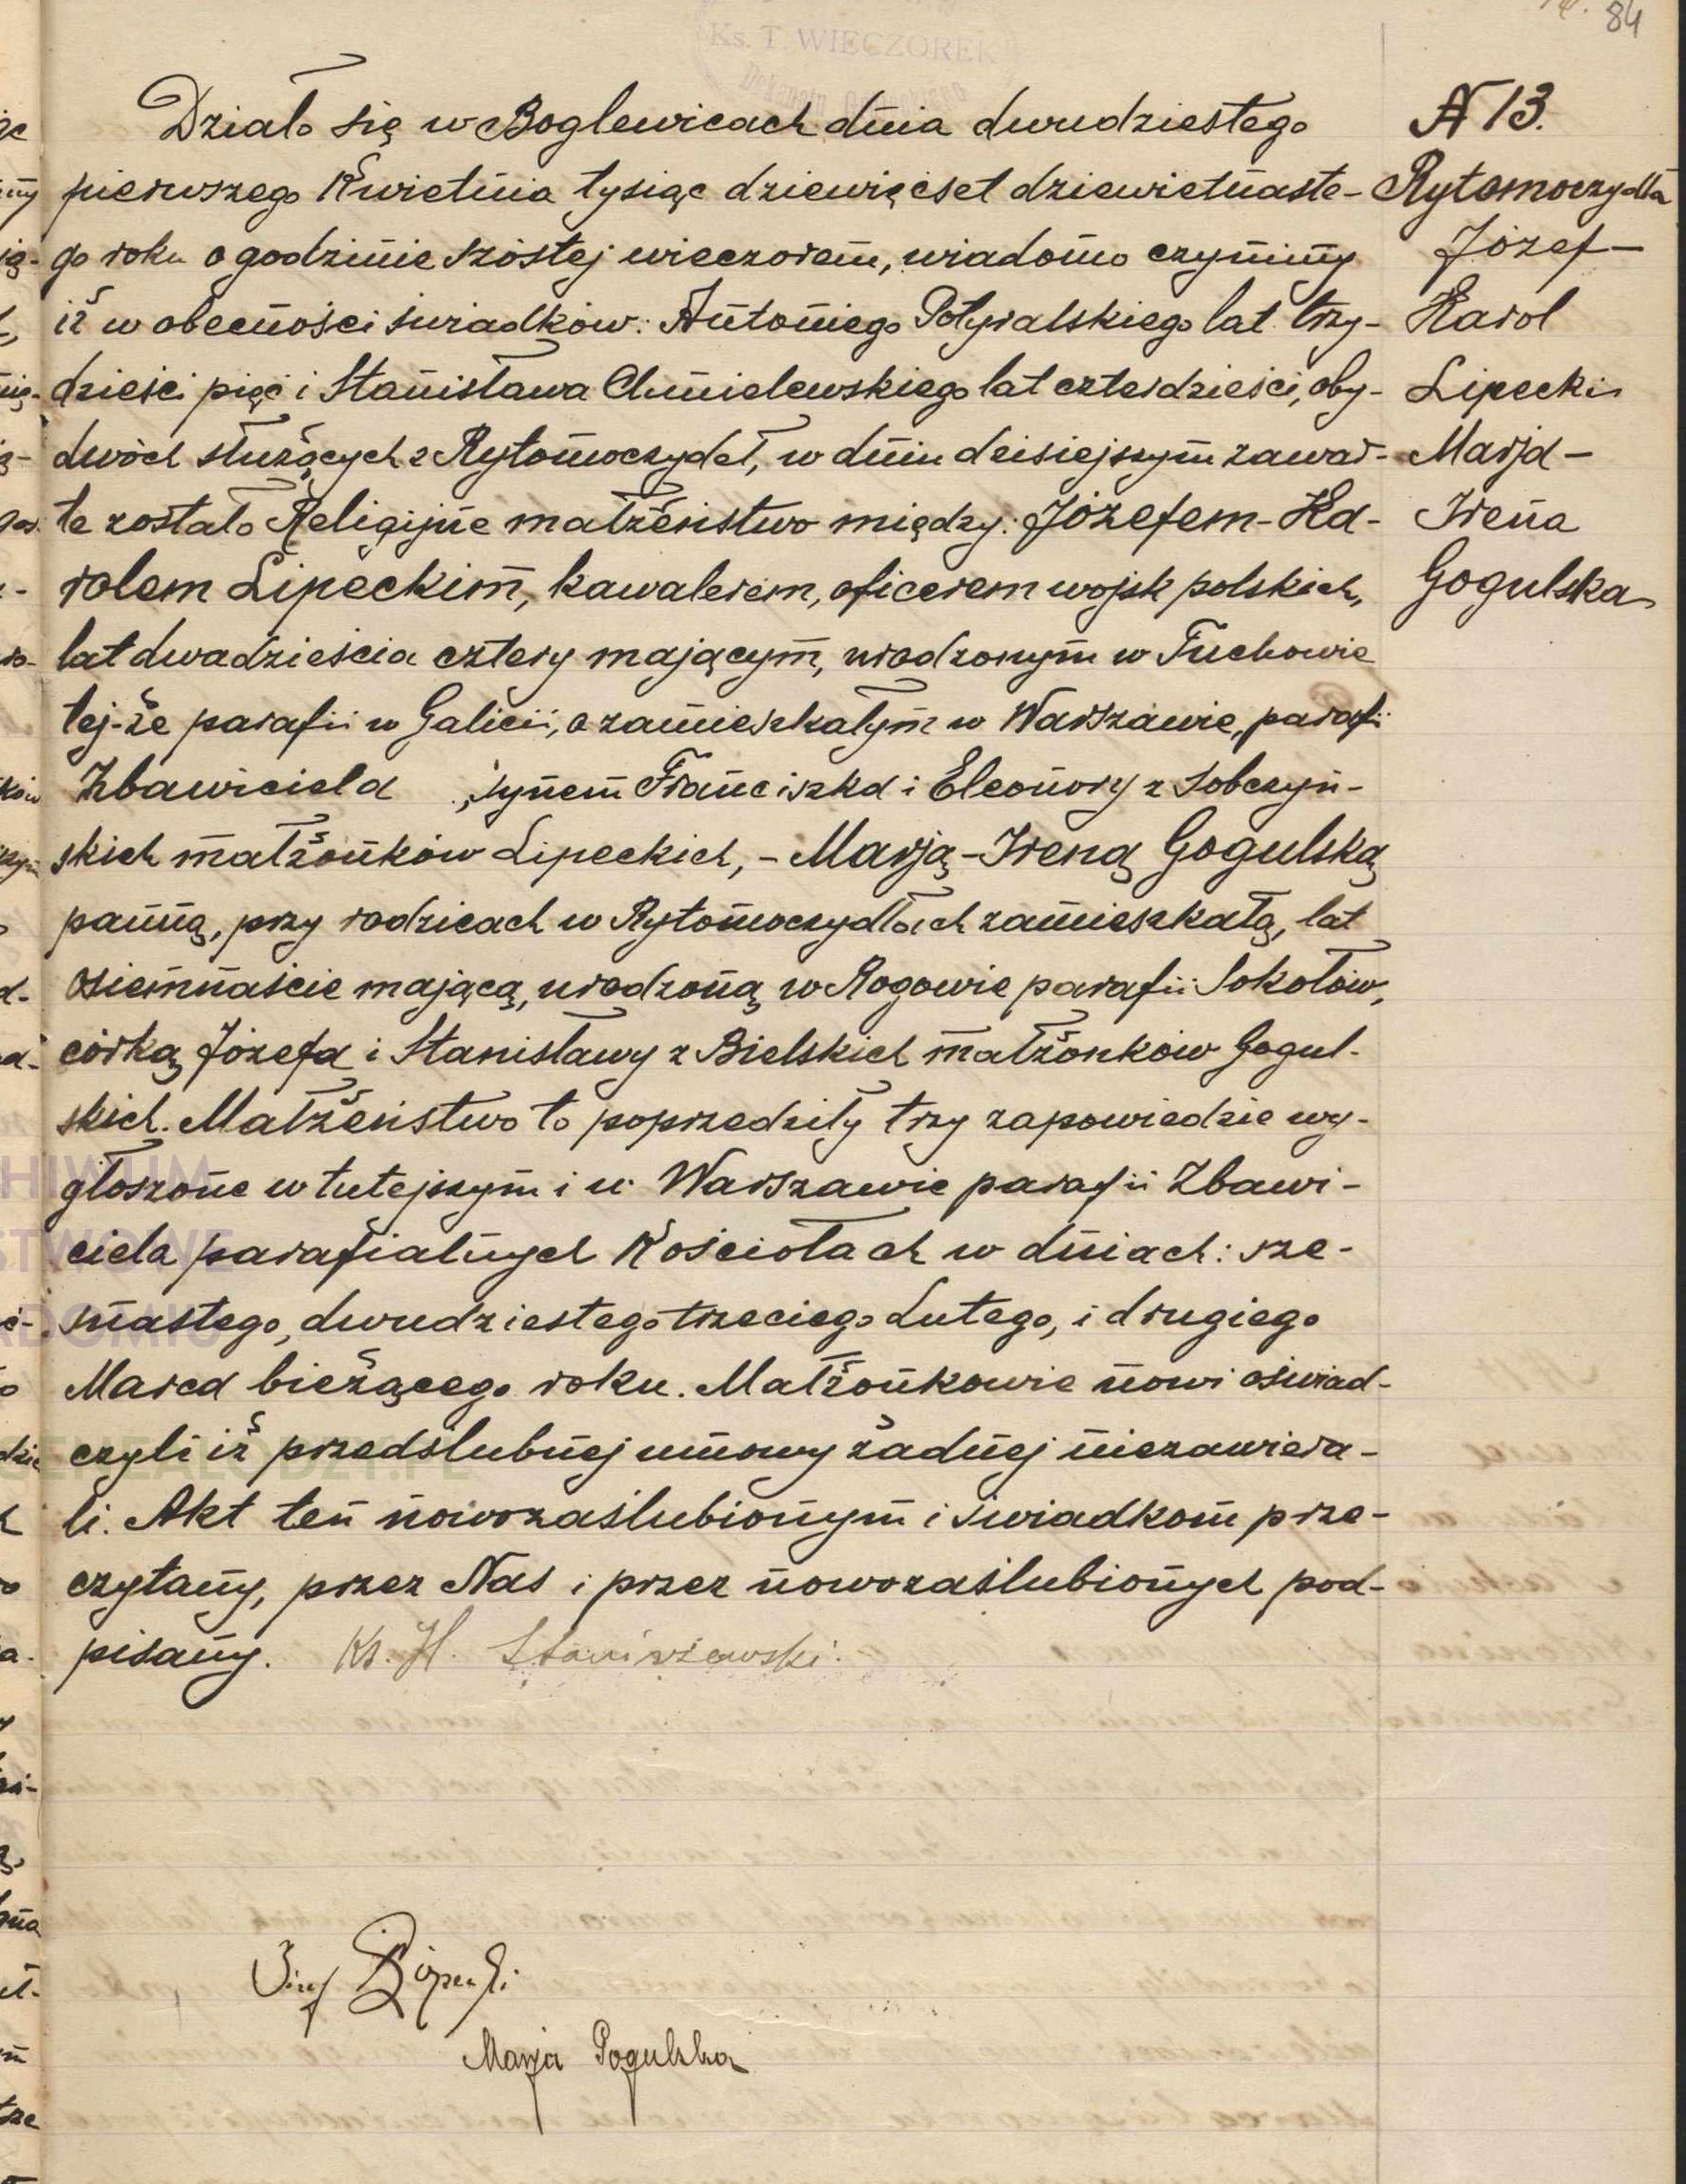 84
Ks. T. WIECZOREK
Działo się w Boglewicach dnia dwudziestego
pierwszego Kwietnia tysiąc dziewięćset dziewietnaste-
go roku o godzinie szóstej wieczorem, wiadomo czynimy
iż w obecności świadków: Antoniego Potyralskiego lat trzy-
dzieści pięć i Stanisława Chmielewskiego lat czterdzieści, oby-
dwóch służących z Rytomoczydeł, w dniu dzisiejszym zawar-
te zostało Religijne małżeństwo między: Józefem-Ka-
rolem Lipeckim, kawalerem, oficerem wojsk polskich,
lat dwadzieścia cztery mającym, urodzonym w Tuchowie
tej-że parafii w Galicii, a zamieszkałym w Warszawie, parafii
Zbawiciela, synem Franciszka i Eleonory z Sobczyń-
skich małżonków Lipeckich, - Marją-Ireną Gogulską
panną, przy rodzicach w Rytomoczydłach zamieszkałą, lat
osiemnaście mającą, urodzoną w Rogowie parafii Sokołów,
córką Józefa i Stanisławy z Bielskich małżonków Gogul-
skich. Małżeństwo to poprzedziły trzy zapowiedzie wy-
głoszone w tutejszym i w Warszawie parafii Zbawi-
ciela parafialnych Kościołach w dniach: sze-
snastego, dwudziestego trzeciego Lutego, i drugiego
Marca bieżącego roku. Małżonkowie nowi oświad-
czyli iż przedślubnej umowy żadnej niezawiera-
li. Akt ten nowozaślubionym i świadkom prze-
czytany, przez Nas i przez nowozaślubionych pod-
pisany. Ks. H. Staniszewski.
Józef Lipecki
Marja Gogulska
N 13.
Rytomoczydła
Józef-
Karol
Lipecki
Marja-
Irena
Gogulska